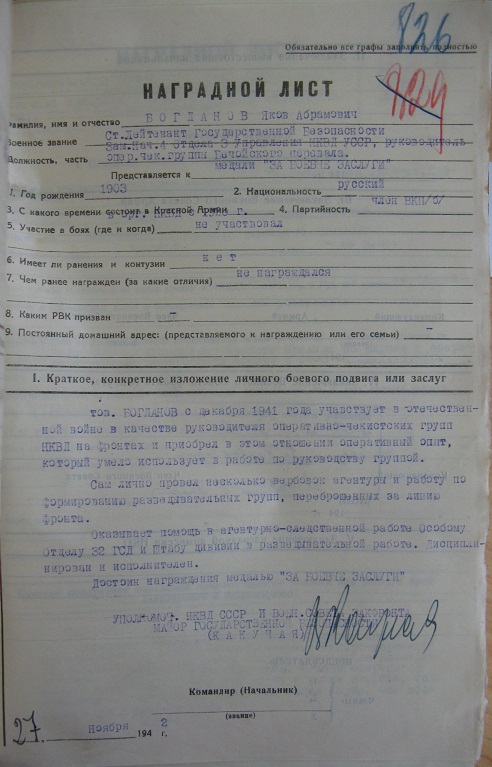 826
829
Обязательно все графы заполнять полностью
НАГРАДНОЙ ЛИСТ
Фамилия, имя и отчество БОГДАНОВ Яков Абрамович
Военное звание Ст.Лейтенант Государственной Безопасности
Должность, часть Зам.Нач.4 Отдела 3 Управления НКВД УССР, руководитель
опер.чек.группы перевала.
Представляется к медали "ЗА БОЕВЫЕ ЗАСЛУГИ"
1. Год рождения 1903 2. Национальность русский
3. С какого времени состоит в Красной Армии в орг. НКВД с г. 4. Партийность член ВКП/б/
5. Участие в боях (где и когда) не участвовал
6. Имеет ли ранения и контузии нет
7. Чем ранее награжден (за какие отличия) не награждался
8. Каким РВК призван –
9. Постоянный домашний адрес: (представляемого к награждению или его семьи) –
I. Краткое, конкретное изложение личного боевого подвига или заслуг
тов. БОГДАНОВ с декабря 1941 года участвует в отечествен-
ной войне в качестве руководителя оперативно-чекистских групп
НКВД на фронтах и приобрел в этом отношении оперативный опыт,
который умело использует в работе по руководству группой.
Сам лично провел несколько вербовок агентуры и работу по
формированию разведывательных групп, переброшенных за линию
фронта.
Оказывает помощь в агентурно-следственной работе Особому
Отделу 32 ГСД и штабу дивизии в разведывательной работе. Дисципли-
нирован и исполнителен.
Достоин награждения медалью "ЗА БОЕВЫЕ ЗАСЛУГИ"
УПОЛНОМОЧ. НКВД СССР И ВОЕН.СОВЕТА ЗАКФРОНТА
МАЙОР ГОСУДАРСТВЕННОЙ БЕЗОПАСНОСТИ
(КАКУЧАЯ)
Командир (Начальник)
(звание)
27 Ноября 1942 г.